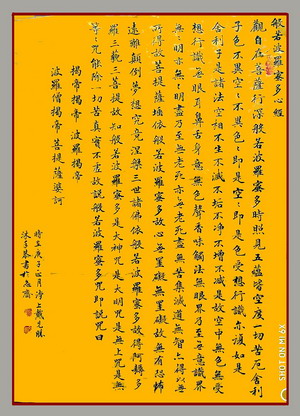 般若波羅蜜多心經
觀自在菩薩行深般若波羅蜜多時照見五蘊皆空度一切苦厄舍利
子色不異空〻不異色〻即是空〻即是色受想行識亦復如是
舍利子是諸法空相不生不滅不垢不淨不增不減是故空中無色無受
想行識無眼耳鼻舌身意無色聲香味觸法無眼界乃至無意識界
無〻明亦無〻明盡乃至無老死亦無老死盡無苦集滅道無智亦無得以無
所得故菩提薩埵依般若波羅蜜多故心無罣礙無罣礙故無有恐怖
遠離顛倒夢想究竟涅槃三世諸佛依般若波羅蜜多故得阿耨多
羅三藐三菩提故知般若波羅蜜多是大神咒是大明咒是無上咒是無
等〻咒能除一切苦真實不虛故說般若波羅蜜多咒即說咒曰
揭帝揭帝 波羅揭帝
波羅僧揭帝 菩提薩婆訶
庚子正月海上戴
沐手恭書於
SHOT ON MI 6X